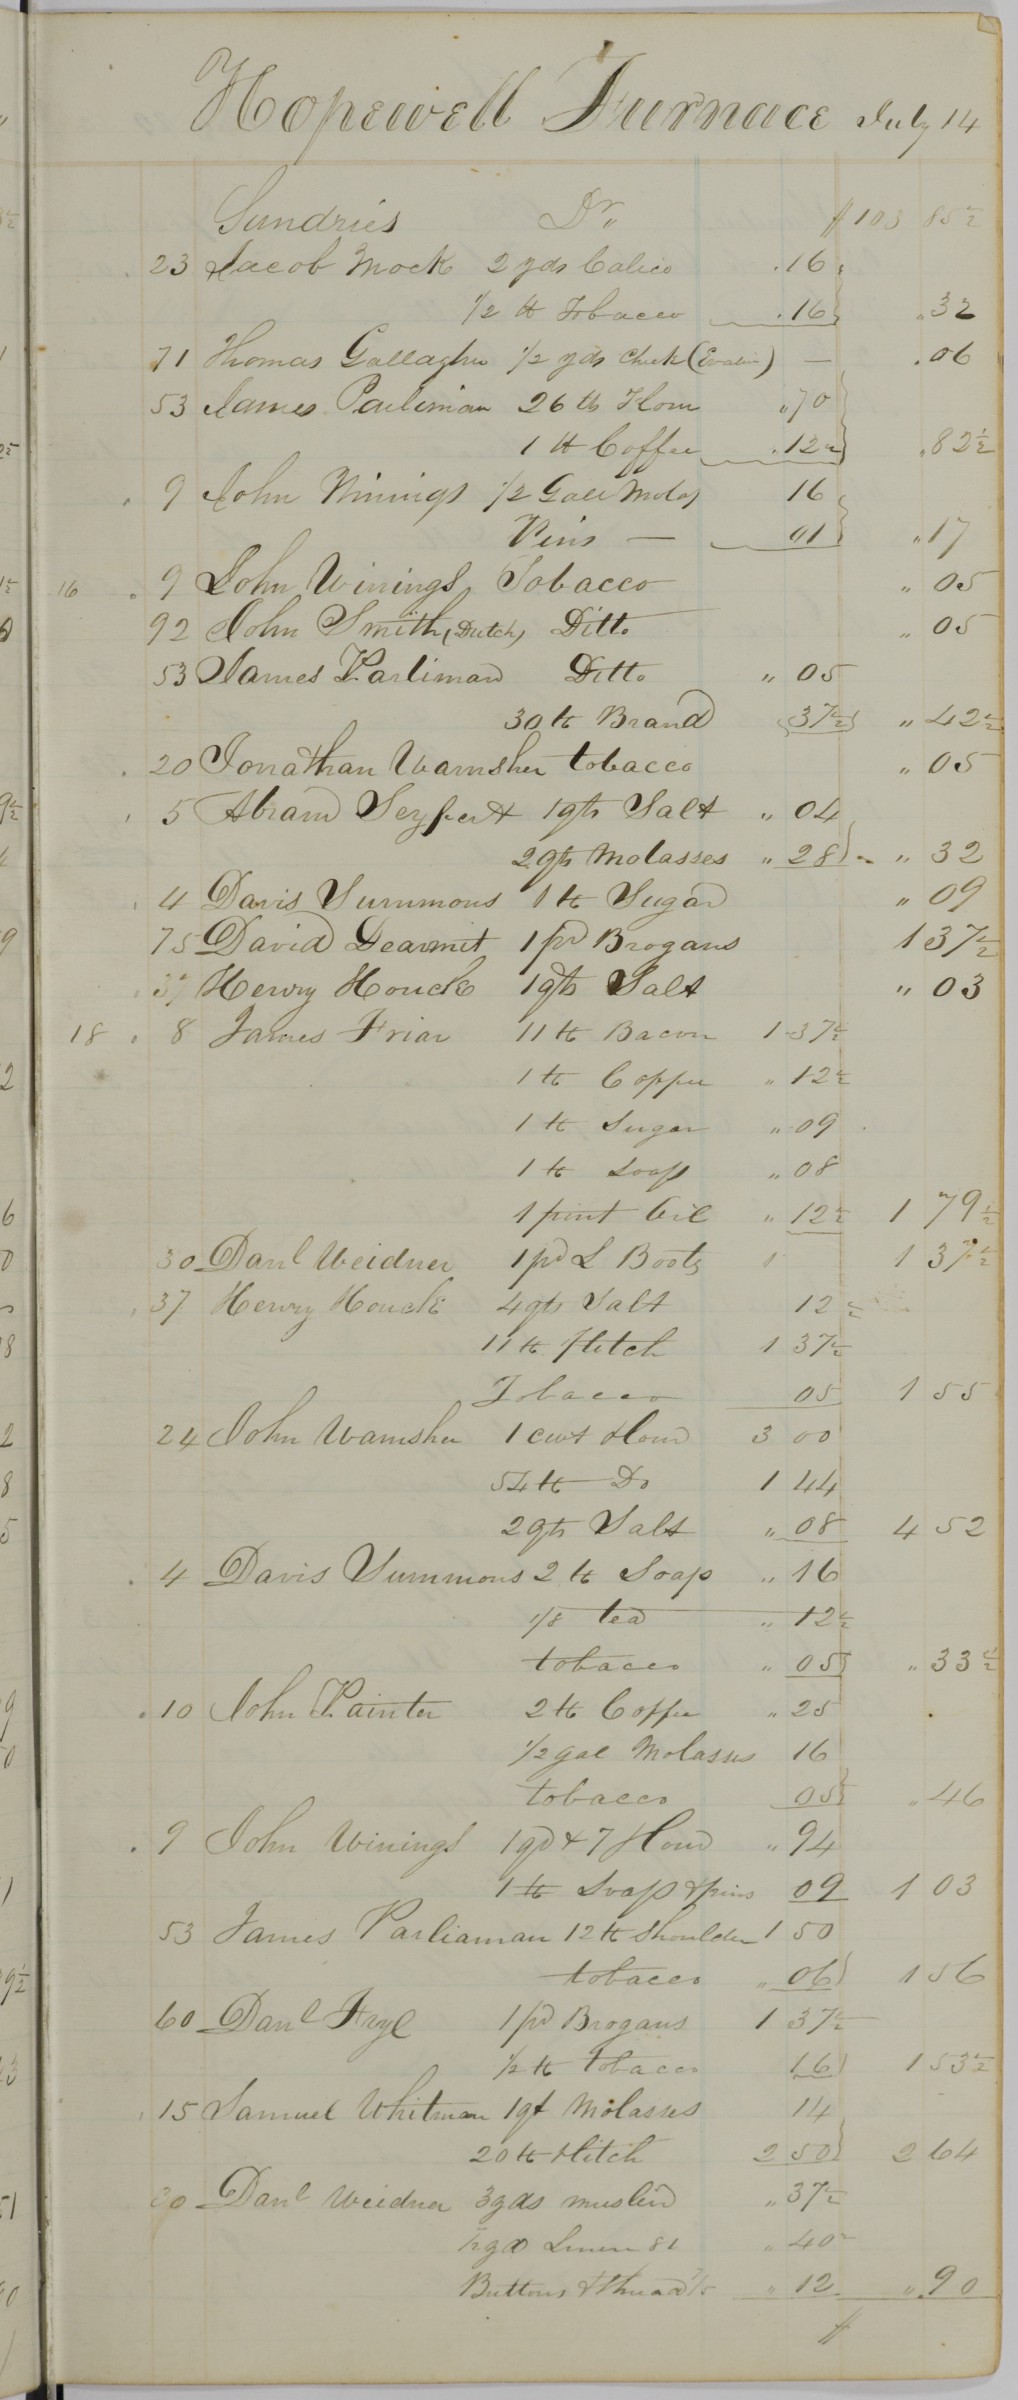 Hopewell Furnace July 14
Sundries Dr. 103 85½
23 Jacob Mock 2 yds Calico .16
½ lb Tobacco .16 .32
71 Thomas Gallagher ½ yds Check — .06
53 James Parliman 26 lb Flour .70
1 lb Coffee .12½ .82½
9 John Winings ½ Gall Molas 16
Pins — 01 " 17
16 9 John Winings Tobacco " 05
92 John Smith (Dutch) Ditto " 05
53 James Parliman Ditto " 05
30 lb Brand 37½ " 42½
20 Jonathan Wamsher tobacco " 05
5 Abram Seyfert 1 qts Salt " 04
2 qts Molasses " 28 " 32
4 Davis Summons 1 lb Sugar " 09
75 David Dearmit 1 pr Brogans 1 37½
37 Henry Houck 1 qts Salt " 03
18 8 James Friar 11 lb Bacon 1 37½
1 lb Coffee " 12½
1 lb Sugar " 09
1 lb Soap " 08
1 pint Oil " 12½ 1 79½
30 Danl Weidner 1 pr L Boots 1 1 37½
37 Henry Houck 4 qts Salt 12½
11 lb Flitch 1 37½
Tobacco 05 1 55
24 John Wamsher 1 cwt Flour 3 00
54 lb Do 1 44
2 qts Salt " 08 4 52
4 Davis Summons 2 lb Soap " 16
1/8 tea " 12½
tobacco " 05 " 33½
10 John Painter 2 lb Coffee " 25
½ gal Molasses 16
tobacco 05 " 46
9 John Winings 1 qr & 7 Flour " 94
1 lb Soap & pins 09 1 03
53 James Parliaman 12 lb Shoulder 1 50
tobacco " 06 1 56
60 Danl Frye 1 pr Brogans 1 37½
½ lb tobacco 16 1 53½
15 Samuel Whitman 1 qt Molasses 14
20 lb Flitch 2 50 2 64
30 Danl Weidner 3 yds muslin " 37½
yd Linen " 40
Buttons & Thread " 12 " 90